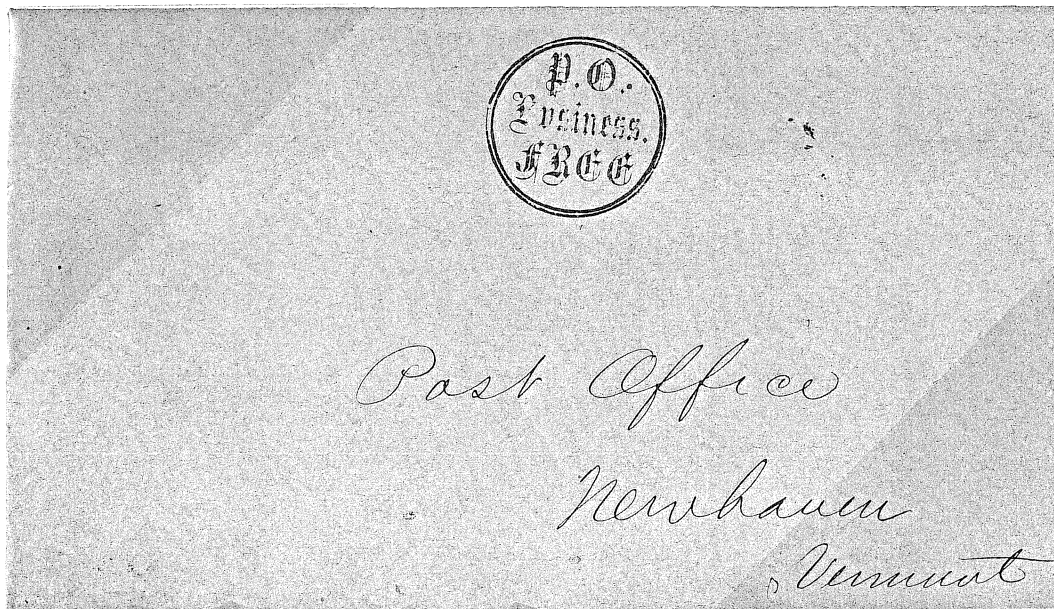 P.O.
Business.
FREE
Post Office
Newhaven
Vermont